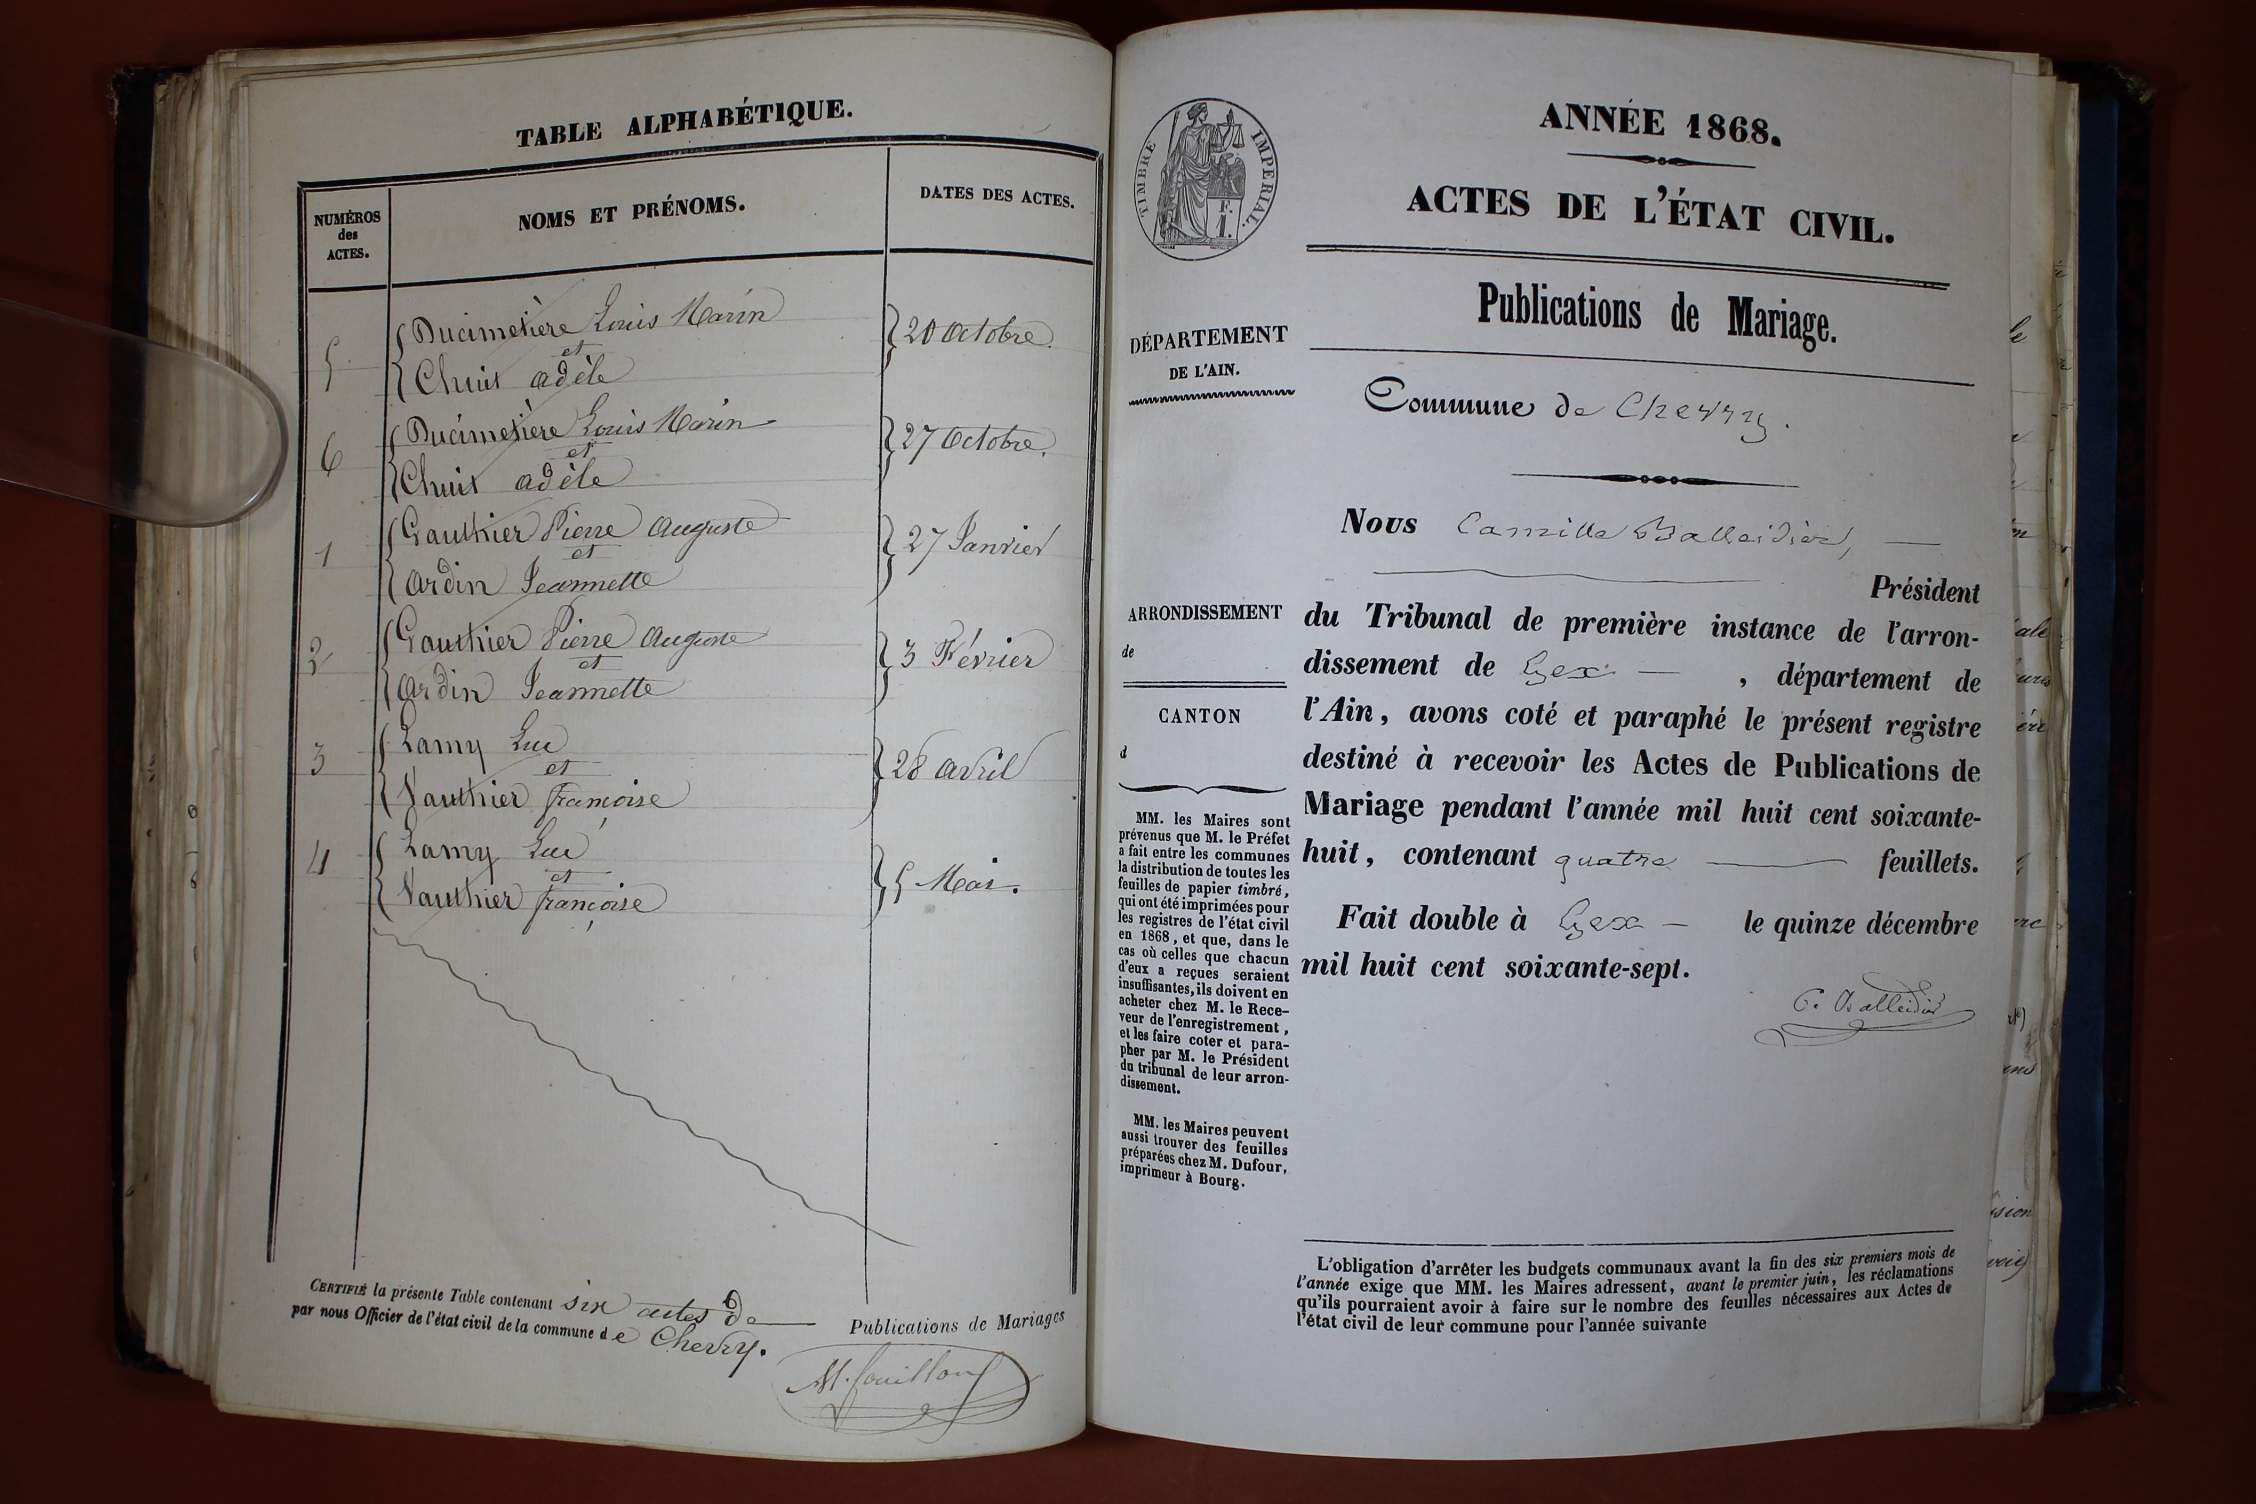 TABLE ALPHABÉTIQUE.
NUMÉROS
des
ACTES.
NOMS ET PRÉNOMS.
DATES DES ACTES.
5 Ducimetière Louis Marin
et
Chuit adèle
20 Octobre.
6 Ducimetière Louis Marin
et
Chuit adèle
27 Octobre.
1 Gauthier Pierre Auguste
et
Ardin Jeannette
27 Janvier
2 Gauthier Pierre Auguste
et
Ardin Jeannette
3 Février
3 Lamy Luc
et
Vauthier françoise
28 avril
4 Lamy Luc
et
Vauthier françoise
5 Mai.
CERTIFIÉ la présente Table contenant six actes de Publications de Mariages
par nous Officier de l'état civil de la commune de Chevry.
TIMBRE IMPERIAL.
F.
1.
ANNÉE 1868.
ACTES DE L'ÉTAT CIVIL.
Publications de Mariage.
DÉPARTEMENT
DE L'AIN.
Commune de Chevry.
ARRONDISSEMENT
de
CANTON
d
MM. les Maires sont
prévenus que M. le Préfet
a fait entre les communes
la distribution de toutes les
feuilles de papier timbré,
qui ont été imprimées pour
les registres de l'état civil
en 1868, et que, dans le
cas où celles que chacun
d'eux a reçues seraient
insuffisantes, ils doivent en
acheter chez M. le Rece-
veur de l'enregistrement,
et les faire coter et para-
pher par M. le Président
du tribunal de leur arron-
dissement.
MM. les Maires peuvent
aussi trouver des feuilles
préparées chez M. Dufour,
imprimeur à Bourg.
Nous Camille Balleidier,
Président
du Tribunal de première instance de l'arron-
dissement de Gex , département de
l'Ain, avons coté et paraphé le présent registre
destiné à recevoir les Actes de Publications de
Mariage pendant l'année mil huit cent soixante-
huit, contenant quatre feuillets.
Fait double à Gex le quinze décembre
mil huit cent soixante-sept.
C. Balleidier
L'obligation d'arrêter les budgets communaux avant la fin des six premiers mois de
l'année exige que MM. les Maires adressent, avant le premier juin, les réclamations
qu'ils pourraient avoir à faire sur le nombre des feuilles nécessaires aux Actes de
l'état civil de leur commune pour l'année suivante